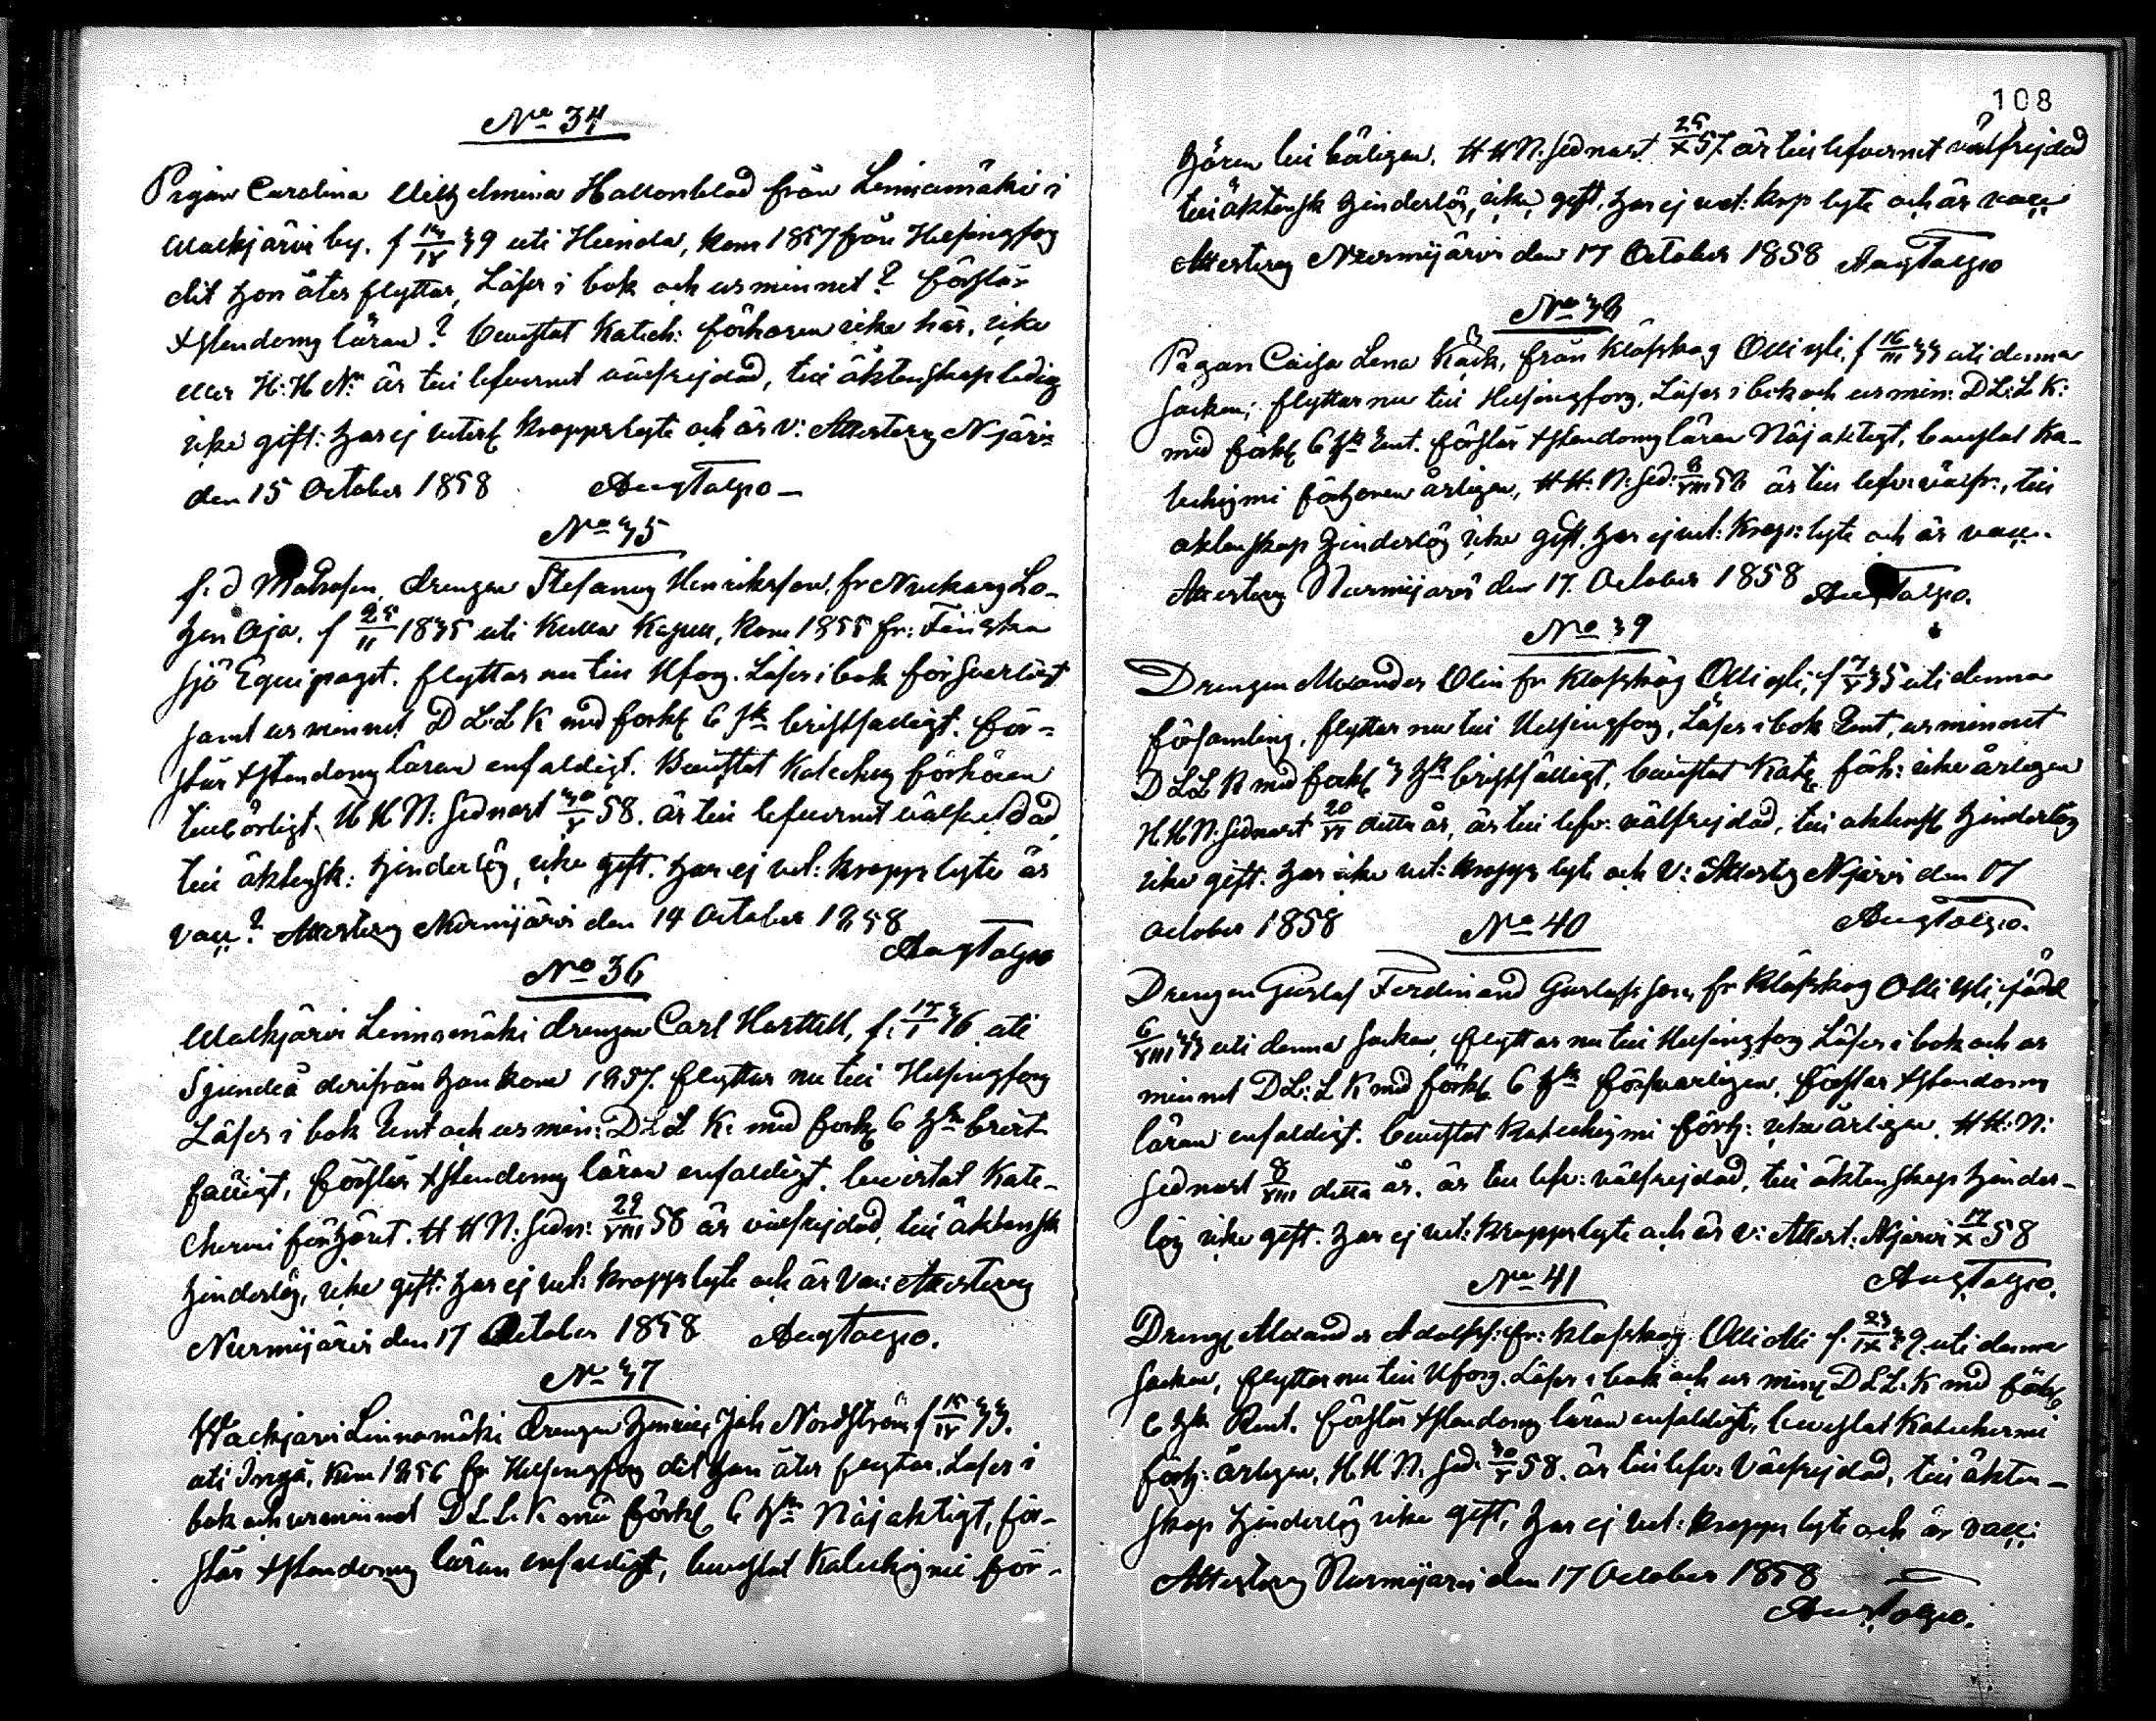 No 34
Pigan Carolina Wilhelmina Hallonblad från Linnamäki i
Walkjärvi by. f 14/IV 39 uti Heinola, kom 1857 från Helsingfors
dit hon åter flyttar, Läser i bok och ur minnet? förstår
Xstendoms läran? bevistat Katech: förhören icke här, icke
eller H:H Nn är till lefvernet välfrejdad, till äktenskap ledig
icke gift: har ej veterl kroppslyte och är v: Attesteras Njärvi
den 15 October 1858 Aug Talpo
No 35
f.d Matrosen, drengen Stefanus Henriksson, fr Nuckars Lo-
hen Oja. f 25/II 1835 uti Kulla Kapell, kom 1855 fr: Finska
Sjö Equipaget. flyttar nu till Hfors. Läser i bok försvarligt
samt ur minnet D L:L K med forkl 6 Hst bristfälligt. för-
står Xstendoms läran enfaldigt. Bevistat Kateches förhören
tillbörligt. H H N: sednast 30/V 58. är till lefvernet välfrejdad
till äktensk: hinderlös, icke gift. har ej vet: kropps lyte är
vacc? Attesteras Nurmijärvi den 14 October 1858
Aug Talpo
No 36
Walkjärvi Linnamäki drengen Carl Harttell, f. 17/I 36 uti
Sjundeå derifrån han kom 1857. flyttar nu till Helsingfors
Läser i bok Rent och ur min: D L L K. med forkl 6 Hst brist-
fälligt, förstår Xstendoms läran enfaldigt, bevistat Kate-
chesmi förhöret. H H N: sedn: 29/VIII 58 är välfrejdad, till äktensk
hinderlös, icke gift: har ej vet: kroppslyte och är Vac: Attesteras
Nurmijärvi den 17 October 1858 Aug Talpo.
No 37
Walkjärvi Linnamäki drengen Henric Joh Nordström f 15/IV 33.
uti Ingå, kom 1856 fr Helsingfors dit han åter flyttar. Läser i
bok och ur minnet D L L K med förkl 6 Hst Nöjaktigt, för-
står Xstendoms läran enfaldigt, bevistat Katechismi för-
108
hören tillbörligen. H H N: sednast 25/X 57. är till lefvernet välfrejdad
till äktensk hinderlös, icke gift, har ej vet: krop lyte och är vacc
Attesteras Nurmijärvi den 17 October 1858 Aug Talpo
No 38
Pigan Caisa Lena Käck, från Klöfskog Ollis gli, f 16/III 33 uti denna
Socken; flyttar nu till Helsingfors, Läser i bok och ur min: D L:L K:
med förkl 6 Hst Rent. förstår Xstendoms läran Nöjaktigt, bevistat Ka-
techismi förhören årligen, H H: N: sed: 8/VIII 58 är till lefv: välfr:, till
äktenskap hinderlös icke gift, har ej vet: krops: lyte och är vacc.
Attesteras Nurmijärvi den 17. October 1858 Aug Talpo.
No 39
Drengen Alexander Olin fr Klöfskog Olli gli; f 7/V 35 uti denna
församling, flyttar nu till Helsingfors, Läser i bok Rent, ur minnet
D L L K med forkl 3 Hst bristfälligt, bevistat Kate förh: icke årligen
H H N: sednast 20/VI detta år, är till lefv: välfrejdad, till äktensk hinderlös
icke gift. har icke vet: kropps lyte och V: Attesteras Njärvi den 17
October 1858 Aug Talpo.
No 40
Drengen Gustaf Ferdinand Gustafsson, fr Klöfskog Olli gli; född
6/VIII 33 uti denna Socken, flyttar nu till Helsingfors Läser i bok och ur
minnet D L: L K med förkl 6 Hst försvarligen, förstår Xstendoms
läran enfaldigt. bevistat Katechismi förh: icke årligen. H H: N:
sednast 8/VIII detta år. är till lefv: välfrejdad, till äktenskap hinder-
lös icke gift. har ej vet: kroppslyte och är v: Attest: Njärvi 17/X 58
Aug Talpo.
No 41
Drengen Alexander Adolfss: fr: Klöfskog Olli f. 23/IX 39 uti denna
Socken, flyttar nu till Hfors. Läser i bok och ur min D L L K med förkl
6 Hst Rent. förstår Xstendoms läran enfaldigt, bevistat Katechesmi
förh: årligen, H H N. sed. 30/V 58. är till lefv: Välfrejdad, till äkten-
skap hinderlös icke gift, har ej vet: kropps lyte och är vacc:
Attesteras Nurmijärvi den 17 October 1858
Aug Talpo.